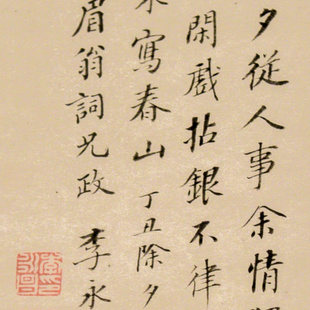 夕從人事余情
閑戲拈銀不律
寫春山 丁丑除夕
眉翁詞兄政 李永